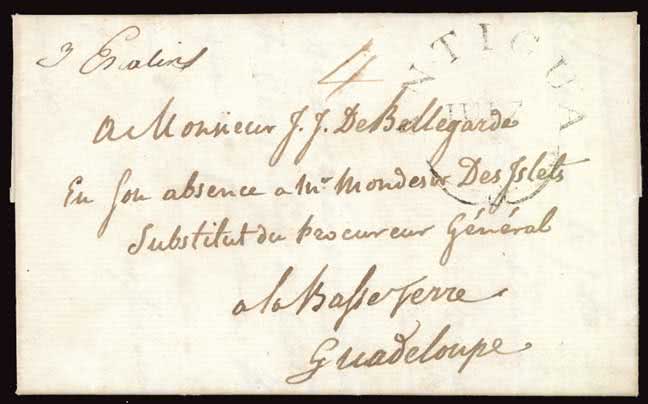 3 Escalins
4
ANTIGUA
A Monsieur J. J. De Bellegarde
En Son absence a Mr. Mondesir Des Islets
Substitut du Procureur Général
a la Basse Terre
Guadeloupe